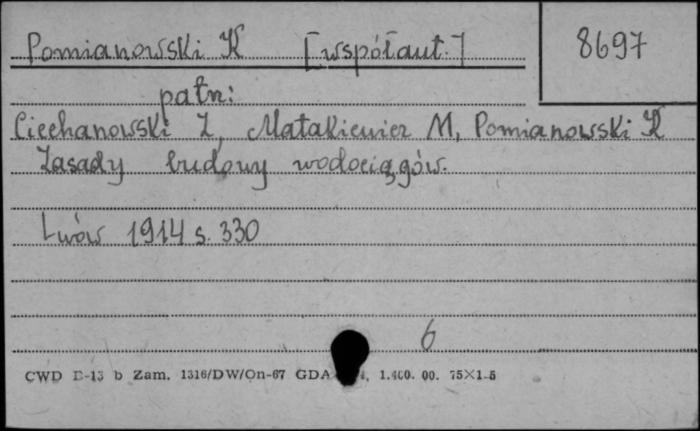 Pomianowski K [współaut.]
8697
patrz:
Ciechanowski Z, Matakiewicz M, Pomianowski K
Zasady budowy wodociągów.
Lwów 1914 s. 330
6
CWD D-13 b Zam. 1316/DW/On-67 GDA 1.400. 00. 75×1